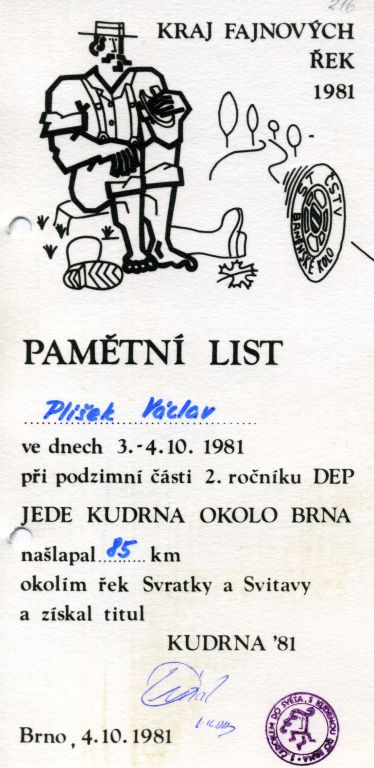 216
KRAJ FAJNOVÝCH
ŘEK
1981
ČSTV
BAHENSKÉ KOLO
PAMĚTNÍ LIST
Plišek Václav
ve dnech 3.-4.10. 1981
při podzimní části 2. ročníku DEP
JEDE KUDRNA OKOLO BRNA
našlapal 85 km
okolím řek Svratky a Svitavy
a získal titul
KUDRNA '81
Brno, 4.10.1981